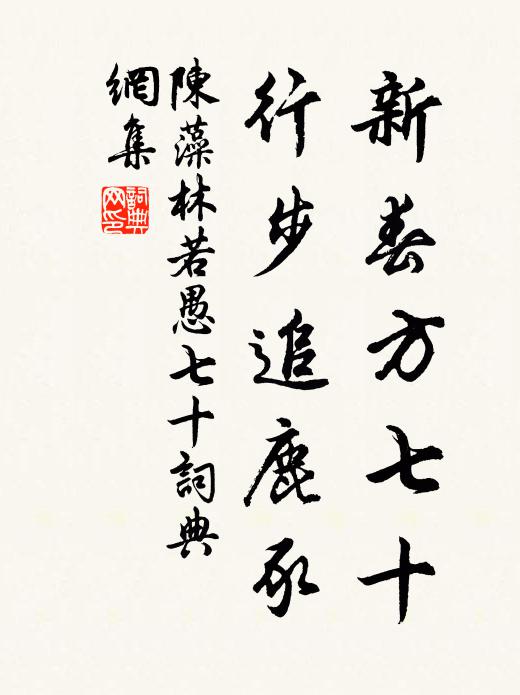 新春方七十
行步追鹿豕
陳藻林若愚七十詞典
網集
詞典網印